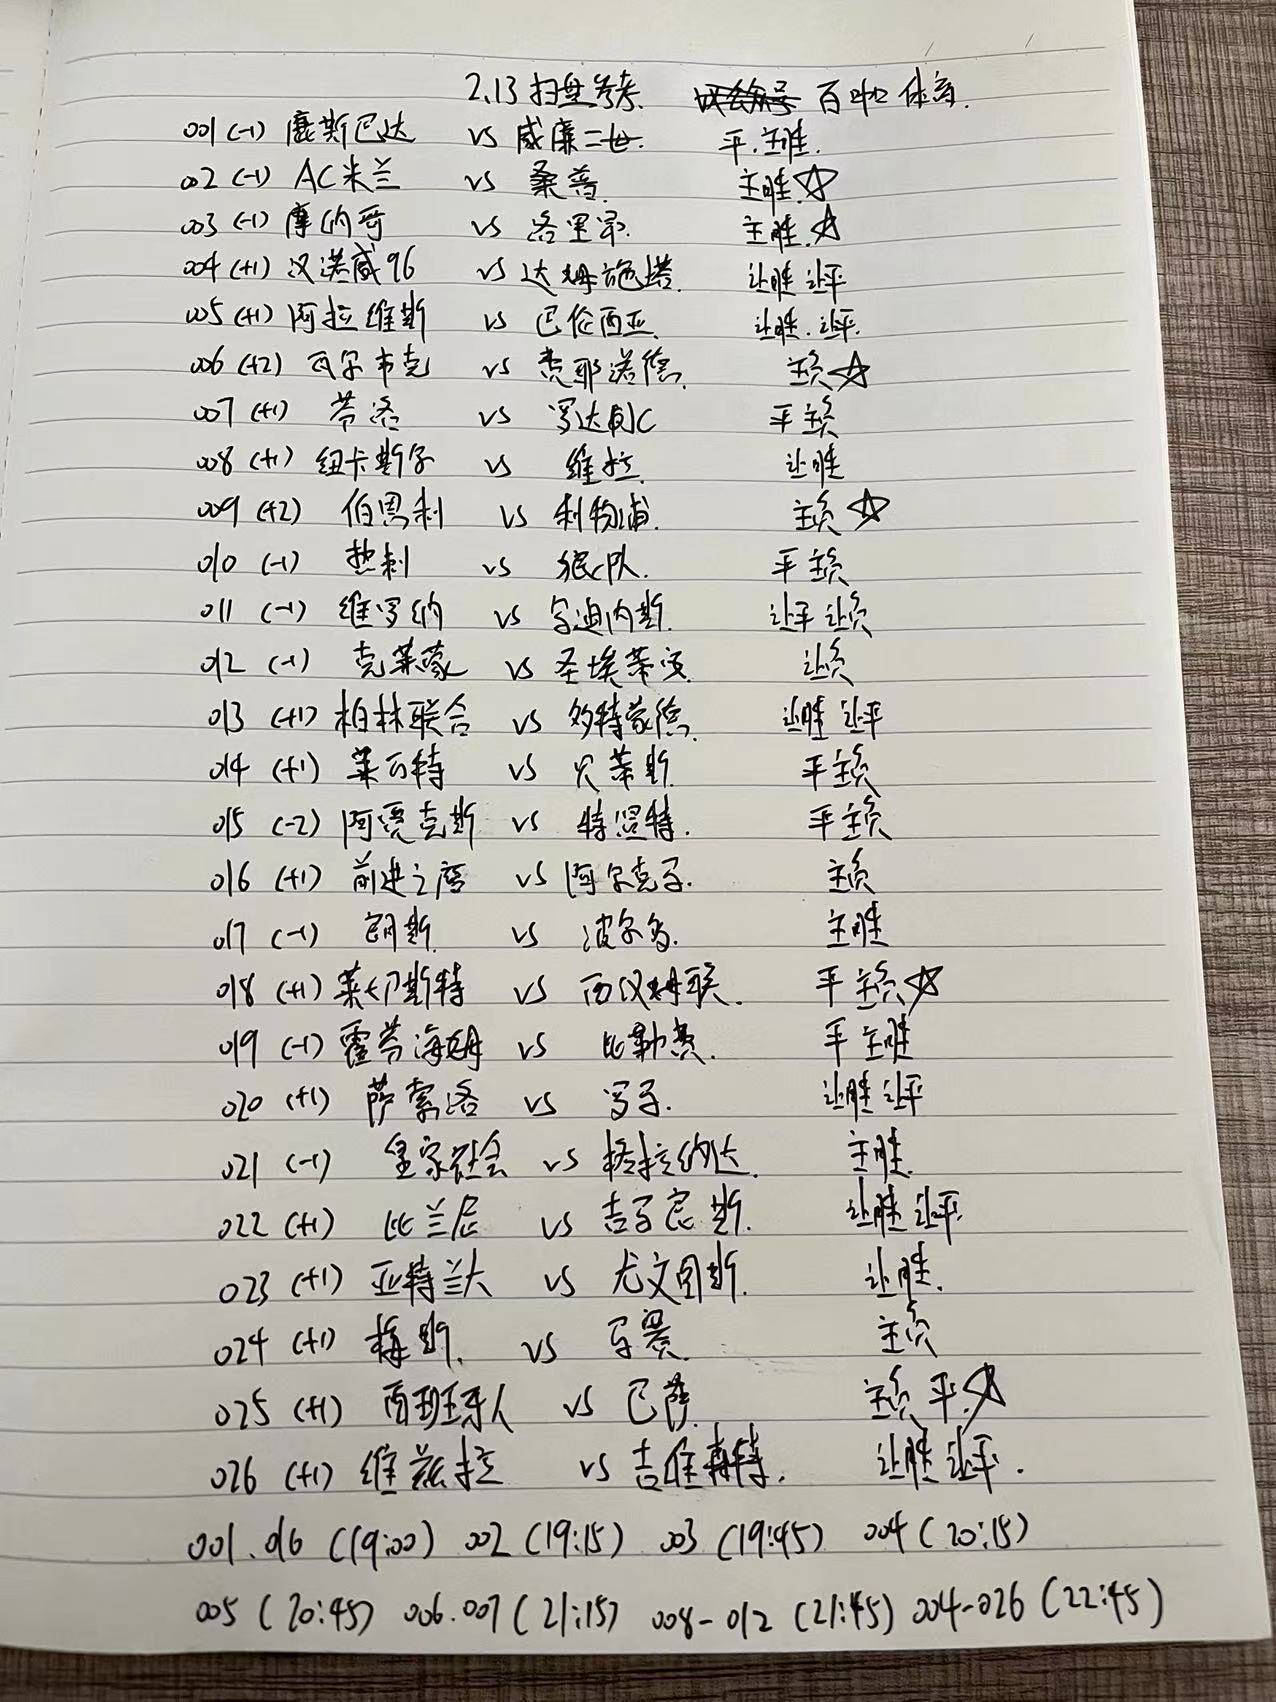 2.13 扫盘参考. 百咖体育.
001 (-1) 鹿斯巴达 vs 威廉二世. 平.主胜.
002 (-1) AC米兰 vs 桑普. 主胜.☆
003 (-1) 摩纳哥 vs 洛里昂. 主胜.☆
004 (+1) 汉诺威96 vs 达姆施塔. 让胜 让平
005 (+1) 阿拉维斯 vs 巴伦西亚. 让胜.让平.
006 (+2) 瓦尔韦克 vs 费耶诺德. 主负☆
007 (+1) 蒂洛 vs 罗达JC 平 主负
008 (+1) 纽卡斯尔 vs 维拉. 让胜
009 (+2) 伯恩利 vs 利物浦. 主负☆
010 (-1) 热刺 vs 狼队. 平 主负
011 (-1) 维罗纳 vs 乌迪内斯. 让平 让负
012 (-1) 克莱蒙 vs 圣埃蒂安 让负
013 (+1) 柏林联合 vs 多特蒙德. 让胜 让平
014 (+1) 莱万特 vs 贝蒂斯. 平主负
015 (-2) 阿贾克斯 vs 特温特. 平主负
016 (+1) 前进之鹰 vs 阿尔克马. 主负
017 (-1) 朗斯. vs 波尔多. 主胜
018 (+1) 莱切斯特 vs 西汉姆联. 平 主负☆
019 (-1) 霍芬海姆 vs 比勒费. 平 主胜
020 (+1) 萨索洛 vs 罗马. 让胜 让平
021 (-1) 皇家社会 vs 格拉纳达. 主胜.
022 (+1) 比兰尼 vs 吉马良斯. 让胜 让平.
023 (+1) 亚特兰大 vs 尤文图斯. 让胜.
024 (+1) 梅斯. vs 马赛. 主负
025 (+1) 西班牙人 vs 巴萨. 主负 平.☆
026 (+1) 维兹拉 vs 吉维森特. 让胜 让平.
001.016 (19:00) 002 (19:15) 003 (19:45) 004 (20:15)
005 (20:45) 006.007 (21:15) 008-012 (21:45) 004-026 (22:45)